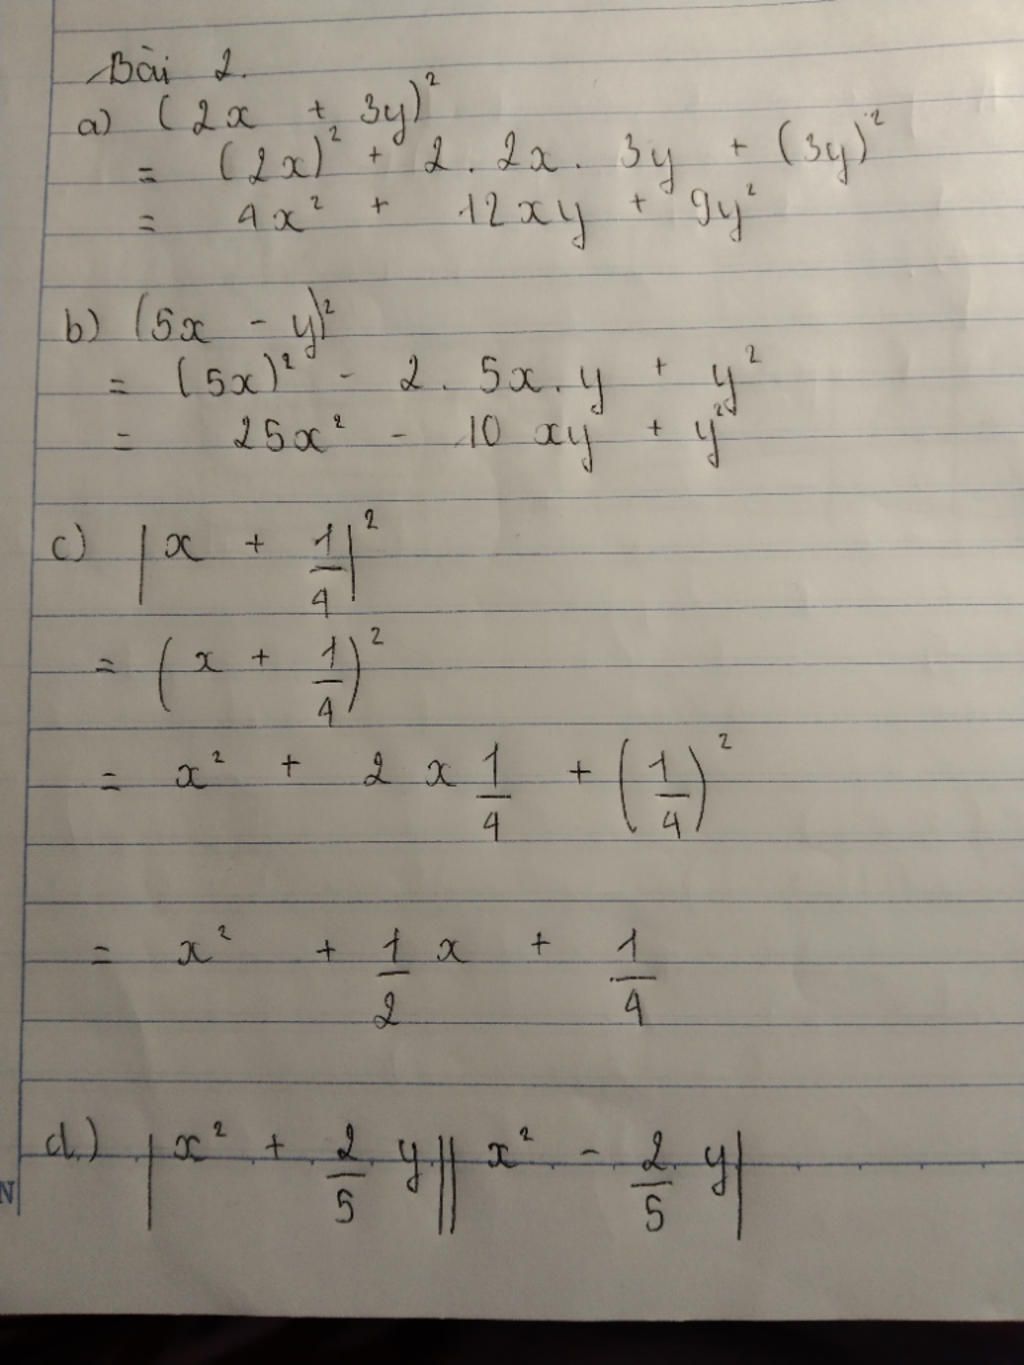 Bài 2.
a) (2x + 3y)²
= (2x)² + 2 . 2x . 3y + (3y)²
= 4x² + 12xy + 9y²
b) (5x - y)²
= (5x)² - 2 . 5x . y + y²
= 25x² - 10 xy + y²
c) |x + 1/4|²
= (x + 1/4)²
= x² + 2 x 1/4 + (1/4)²
= x² + 1/2 x + 1/4
d.) |x² + 2/5 y||x² - 2/5 y|
N